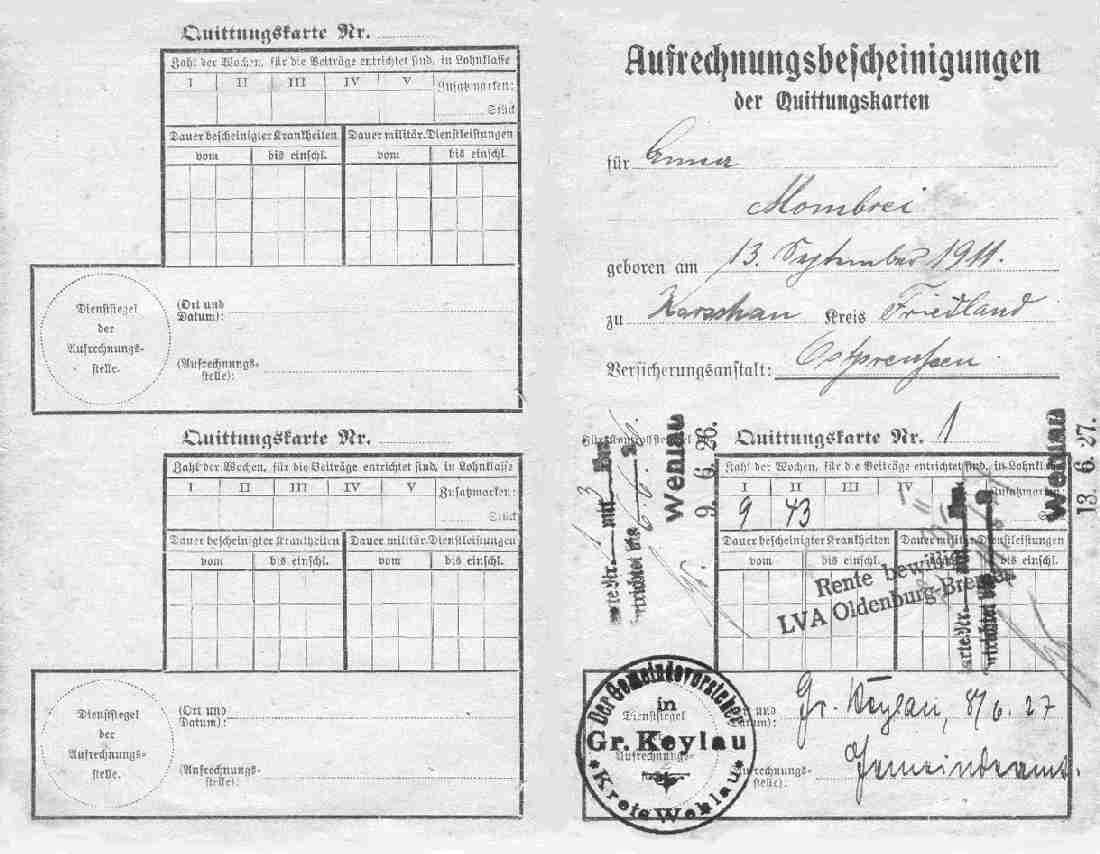 Quittungskarte Nr.
Zahl der Wochen, für die Beiträge entrichtet sind, in Lohnklasse
I II III IV V Zusatzmarken:
Stück
Dauer bescheinigter Krankheiten Dauer militär. Dienstleistungen
vom bis einschl. vom bis einschl.
Dienstsiegel
der
Aufrechnungs-
stelle.
(Ort und
Datum):
(Aufrechnungs-
stelle):
Quittungskarte Nr.
Zahl der Wochen, für die Beiträge entrichtet sind, in Lohnklasse
I II III IV V Zusatzmarken:
Stück
Dauer bescheinigter Krankheiten Dauer militär. Dienstleistungen
vom bis einschl. vom bis einschl.
Dienstsiegel
der
Aufrechnungs-
stelle.
(Ort und
Datum):
(Aufrechnungs-
stelle):
Aufrechnungsbescheinigungen
der Quittungskarten
für
Mombrei
geboren am 13. September 1911.
zu Karschau Kreis Friedland
Versicherungsanstalt: Ostpreussen
Quittungskarte Nr. 1
Wehlau
9. 6. 26.
Wehlau
13. 6. 27.
Zahl der Wochen, für die Beiträge entrichtet sind, in Lohnklasse
I II III IV
9 43
Dauer bescheinigter Krankheiten Dauer militär. Dienstleistungen
vom bis einschl. vom bis einschl.
Rente bewilligt
LVA Oldenburg-Bremen
Der Gemeindevorsteher
in
Gr. Keylau
* Kreis Wehlau *
Dienstsiegel
Aufrechnungs-
Ort und
Datum): Gr. Keylau, 8/6. 27
Aufrechnungs-
stelle): Gemeindeamt.